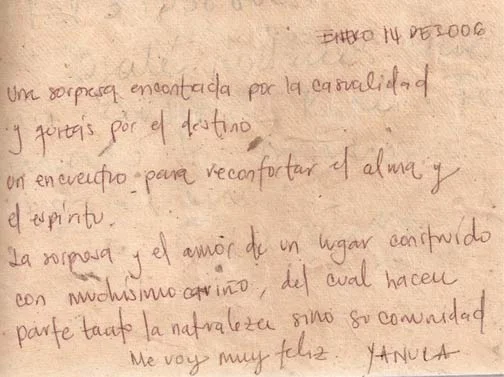 ENERO 14 DE 2006
Una sorpresa encontrada por la casualidad
y quizás por el destino
un encuentro para reconfortar el alma y
el espiritu.
La sorpresa y el amor de un lugar construido
con muchisimo cariño, del cual hacen
parte tanto la naturaleza sino su comunidad
Me voy muy feliz. YANULA